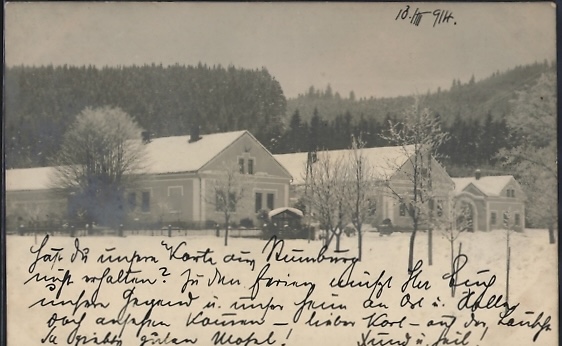 13./III 914.
Hast du unsere Karte aus Neuburg
nicht erhalten? Zu den Ferien müßt Ihr Euch
unsere Gegend u. unser Heim an Ort u. Stelle
doch ansehen kommen – lieber Karl – auf der
Da gibts guten Most!